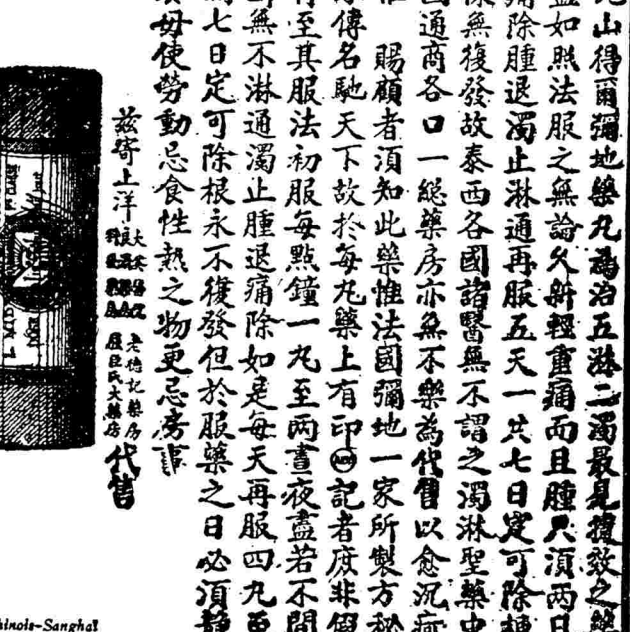 山得爾彌地藥丸為治五淋二濁最見捷效之藥
如照法服之無論久新輕重痛而且腫只須兩日
痛除腫退濁止淋通再服五天一共七日定可除
無復發故泰西各國諸醫無不謂之濁淋聖藥
通商各口一總藥房亦無不樂為代售以愈沉疴
賜顧者須知此藥惟法國彌地一家所製方秘
傳名馳天下故於每丸藥上有印記者庶非假
至其服法初服每點鐘一丸至兩晝夜盡若不間
無不淋通濁止腫退痛除如是每天再服四丸
七日定可除根永不復發但於服藥之日必須靜
毋使勞動忌食性熱之物更忌房事
茲寄上洋
老德記藥房
屈臣氏大藥房
代售
hinois-Sanghaï